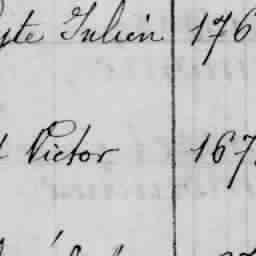 yte Julien 176
Victor 167